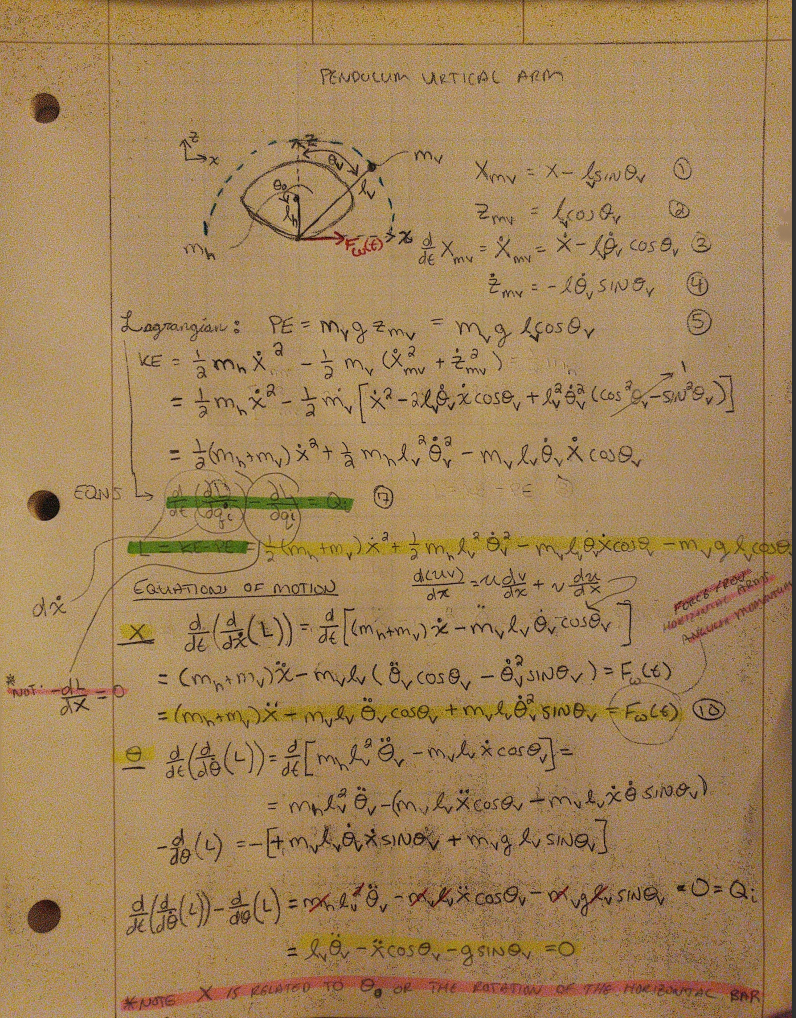 PENDULUM VIRTICAL ARM
z
x
Z
θ_v
m_v
θ_o
l_v
l_h
m_h
F_ω(t)
x
X_mv = X - l_v sinθ_v ①
Z_mv = l_v cosθ_v ②
d/dt X_mv = Ẋ_mv = Ẋ - l_v θ̇_v cosθ_v ③
ż_mv = -l θ̇_v SINθ_v ④
Lagrangian: PE = m_v g z_mv = m_v g l_v cosθ_v ⑤
KE = 1/2 m_h Ẋ² - 1/2 m_v (Ẋ²_mv + ż²_mv)
= 1/2 m_h ẋ² - 1/2 m_v [ẋ² - 2l_v θ̇_v ẋ cosθ_v + l_v² θ̇_v² (cos²θ_v - SIN²θ_v)] 1
= 1/2 (m_h+m_v) ẋ² + 1/2 m_h l_v² θ̇_v² - m_v l_v θ̇_v Ẋ cosθ_v
EQNS d/dt (dL/dq̇_i) - dL/dq_i = Q_i ⑦
L = KE-PE = 1/2 (m_h+m_v) ẋ² + 1/2 m_h l_v² θ̇_v² - m_v l_v θ̇ ẋ cosθ - m_v g l_v cosθ
EQUATIONS OF MOTION d(uv)/dx = u dv/dx + v du/dx
dẋ
FORCE FROM
HORIZONTAL ARMS
ANGULAR MOMENTUM
X d/dt (d/dẋ (L)) = d/dt [(m_h+m_v) ẋ - m_v l_v θ̇_v cosθ_v]
= (m_h+m_v) ẍ - m_v l_v (θ̈_v cosθ_v - θ̇_v² SINθ_v) = F_ω(t)
* NOT: -dL/dX = 0
= (m_h+m_v) Ẍ - m_v l_v θ̈_v cosθ_v + m_v l_v θ̇_v² SINθ_v = F_ω(t) ⑩
θ d/dt (d/dθ̇ (L)) = d/dt [m_h l_v² θ̇_v - m_v l_v ẋ cosθ_v] =
= m_h l_v² θ̈_v - (m_v l_v ẍ cosθ_v - m_v l_v ẋ θ̇ SINθ_v)
-d/dθ (L) = -[+m_v l_v θ̇_v ẋ SINθ_v + m_v g l_v SINθ_v]
d/dt (d/dθ̇ (L)) - d/dθ (L) = m_h l_v² θ̈_v - m_v l_v ẍ cosθ_v - m_v g l_v SINθ_v = 0 = Q_i
= l_v θ̈_v - ẍ cosθ_v - g SINθ_v = 0
*NOTE X IS RELATED TO θ_o OR THE ROTATION OF THE HORIZONTAL BAR